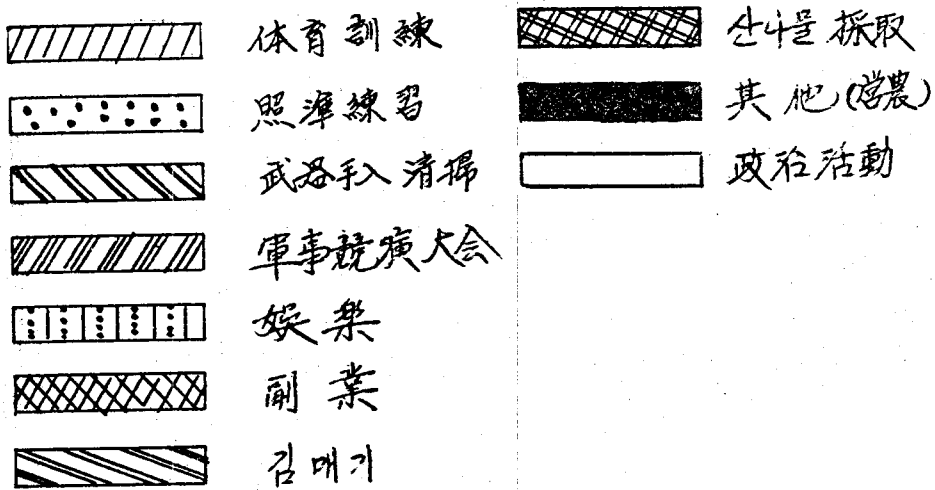 体育訓練
照準練習
武器手入清掃
軍事競演大会
娯楽
副業
김매기
산나물 採取
其他(営農)
政治活動